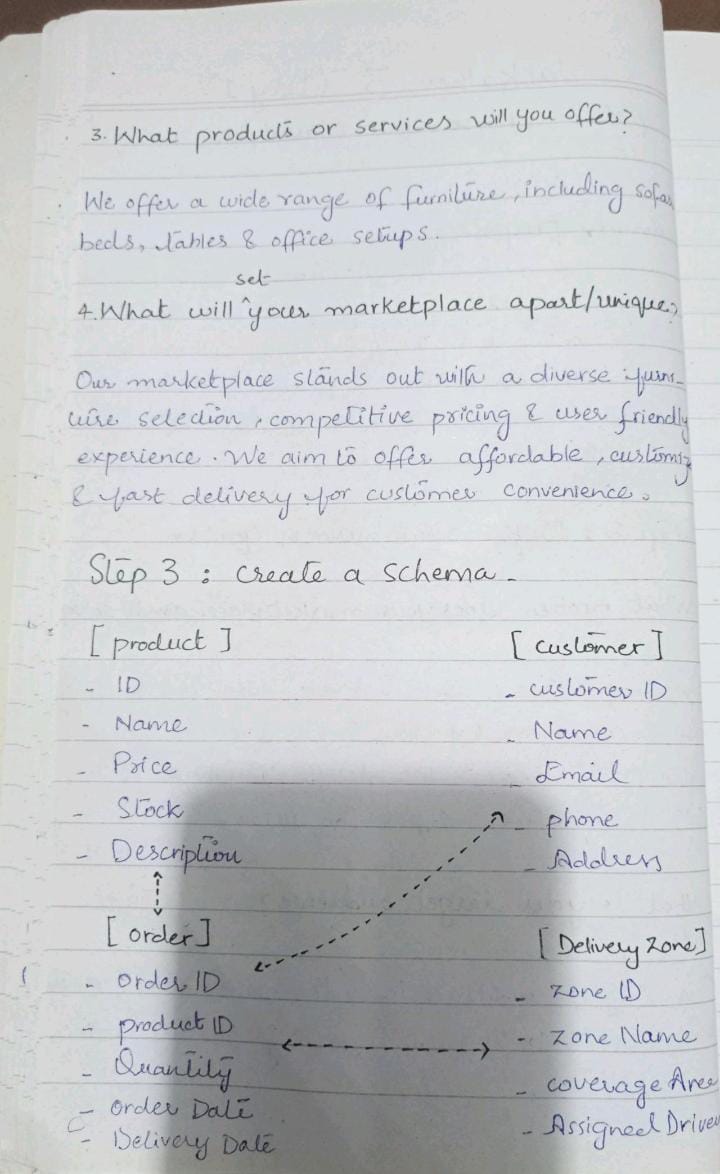 3. What products or services will you offer?
We offer a wide range of furniture, including sofas
beds, tables & office setups.
set
4. What will ^ your marketplace apart/unique?
Our marketplace stands out with a diverse furni-
ture selection, competitive pricing & user friendly
experience. We aim to offer affordable, customiz
& fast delivery for customer convenience.
Step 3 : Create a schema.
[ product ]
- ID
- Name
- Price
- Stock
- Description
[ customer ]
- customer ID
- Name
- Email
- phone
- Address
[ order ]
- order ID
- product ID
- Quantity
- Order Date
- Delivery Date
[ Delivery Zone ]
- zone ID
- zone Name
- coverage Area
- Assigned Driver